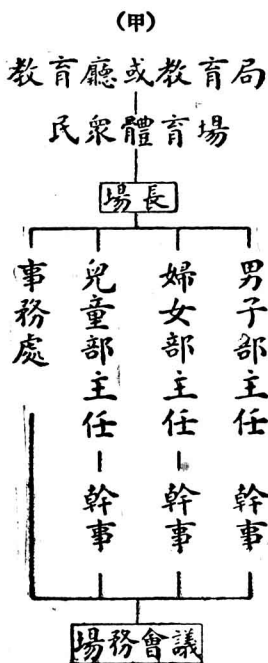 (甲)
教育廳或教育局
民衆體育場
場長
男子部主任
幹事
婦女部主任
幹事
兒童部主任
幹事
事務處
場務會議